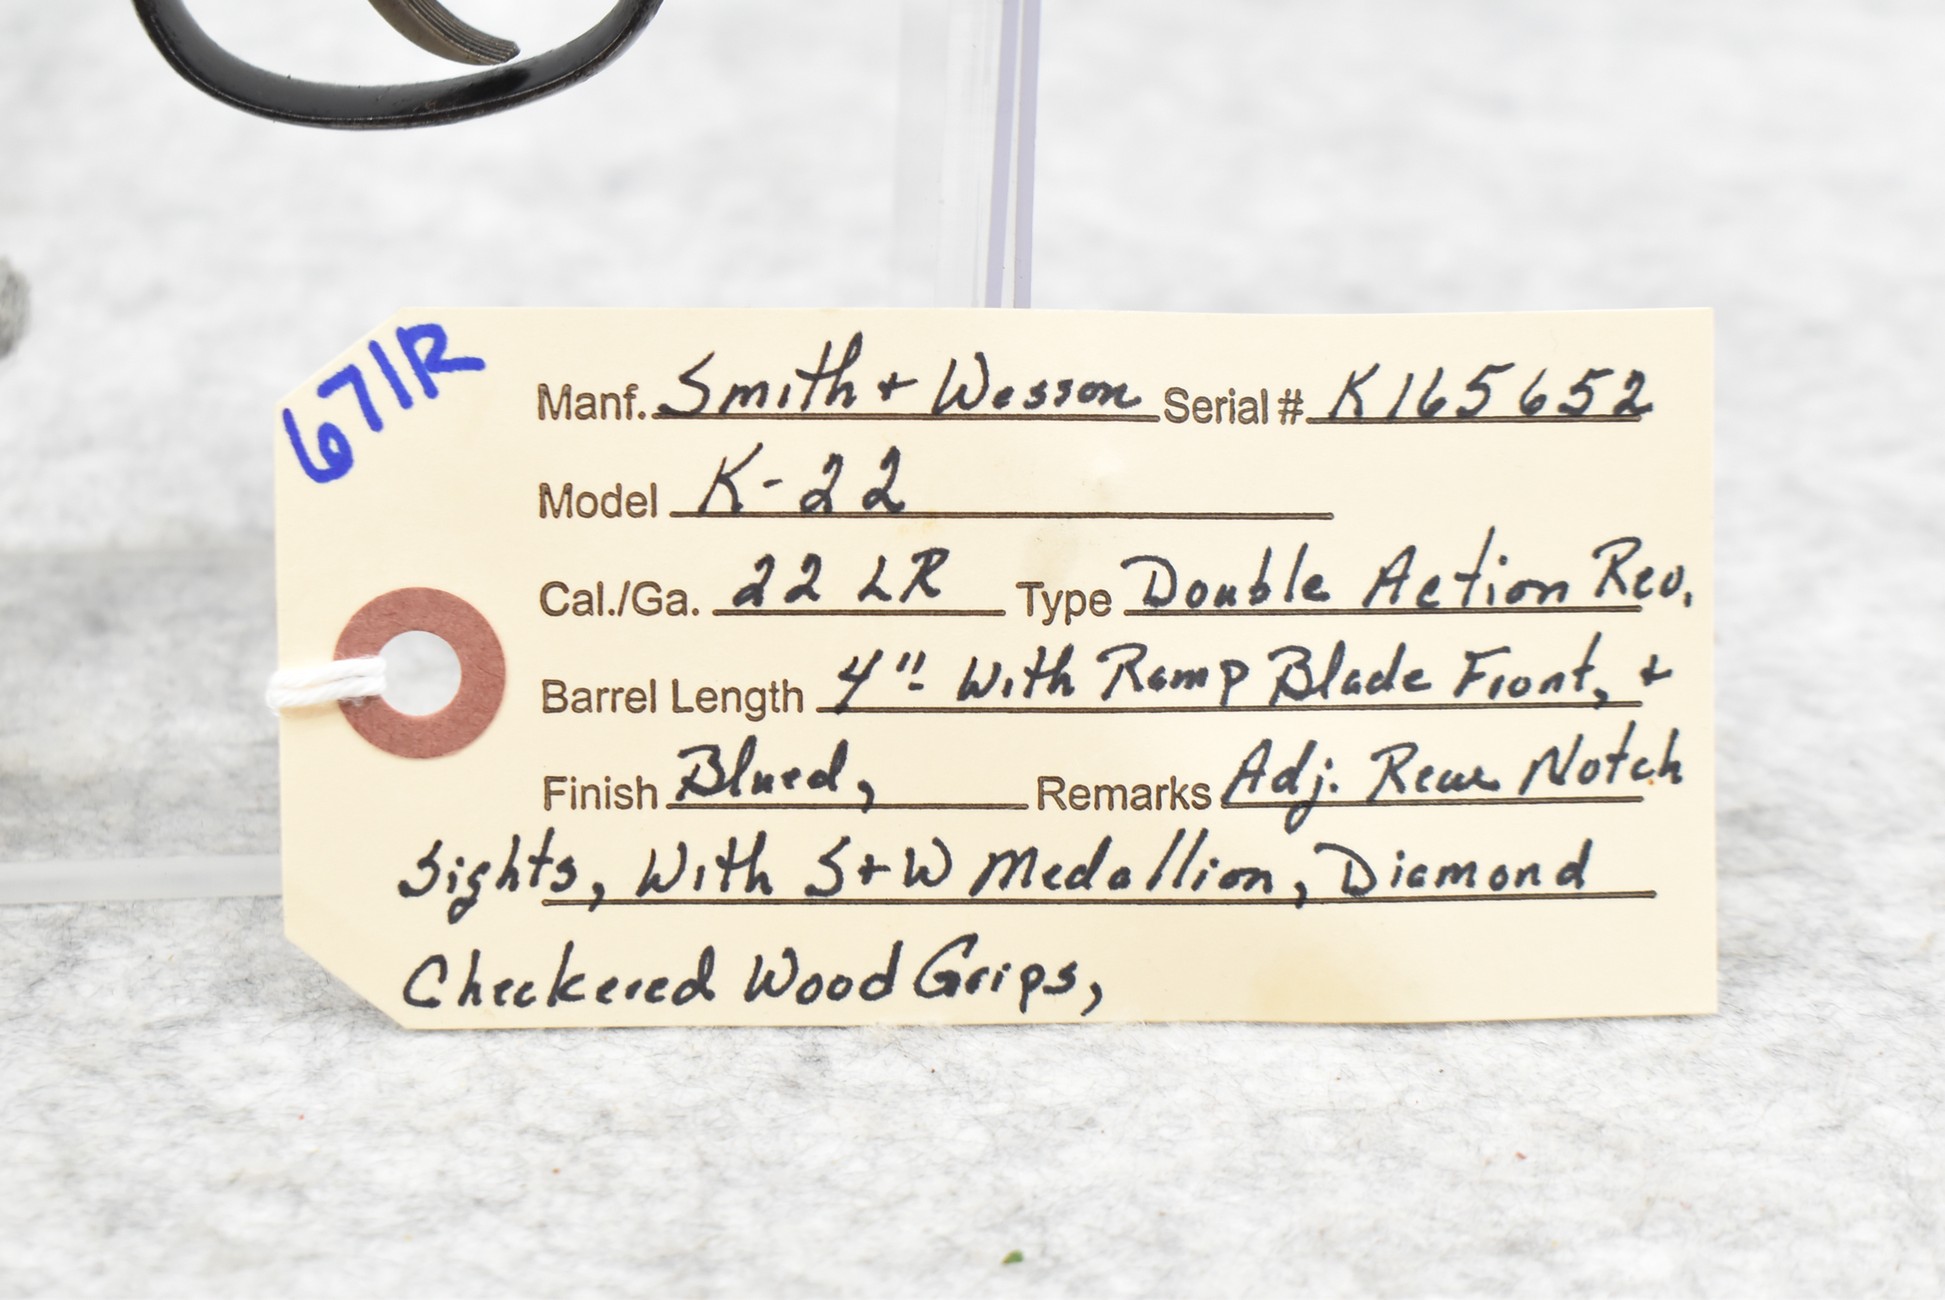 671R
Manf. Smith + Wesson Serial # K165652
Model K-22
Cal./Ga. 22 LR Type Double Action Rev.
Barrel Length 4" With Ramp Blade Front, +
Finish Blued, Remarks Adj. Rear Notch
Sights, With S+W Medallion, Diamond
Checkered Wood Grips,